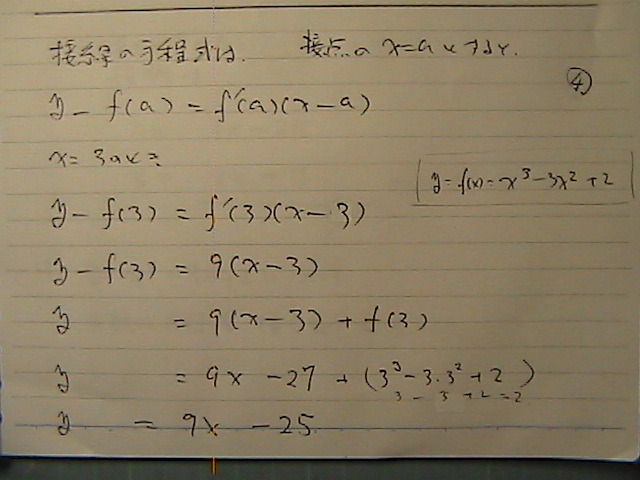 接線の方程式は. 接点の x=a とすると.
④
y - f(a) = f'(a)(x - a)
x = 3のとき
y = f(x) = x³ - 3x² + 2
y - f(3) = f'(3)(x - 3)
y - f(3) = 9(x - 3)
y = 9(x - 3) + f(3)
y = 9x - 27 + (3³ - 3·3² + 2)
3 - 3 + 2 = 2
y = 9x - 25